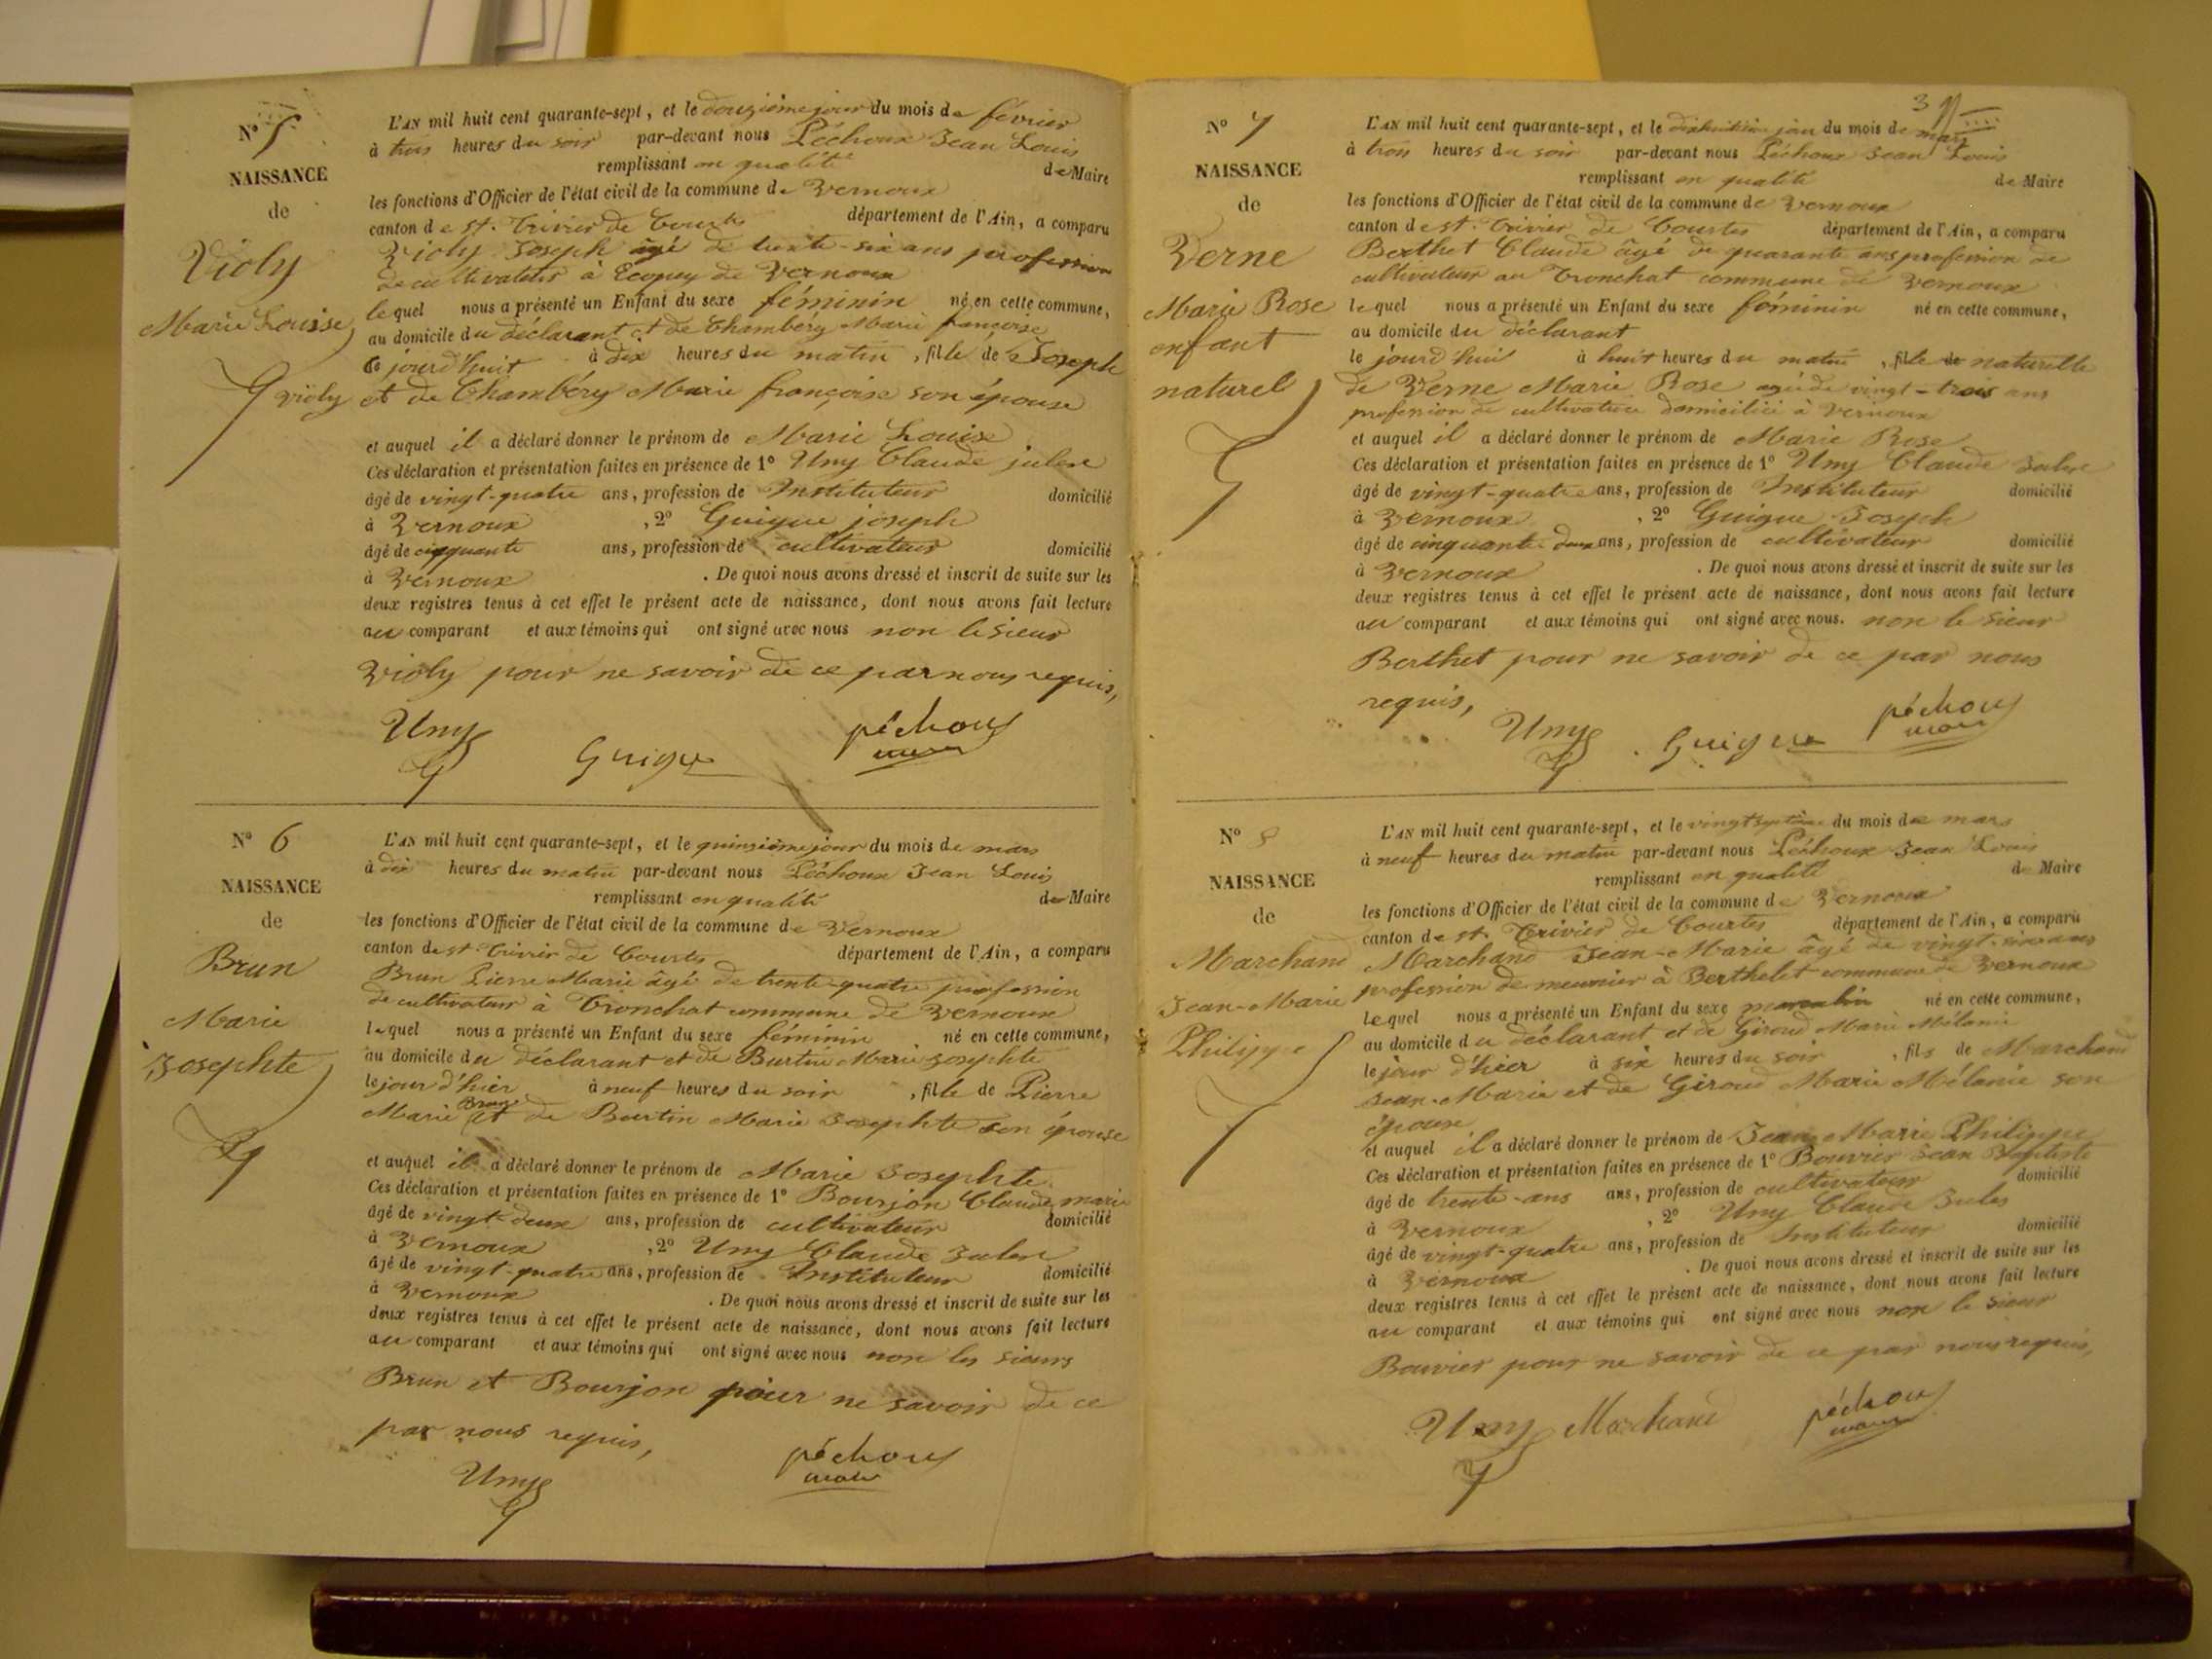 N° 5
NAISSANCE
de
Violy
Marie Louise
violy
L'AN mil huit cent quarante-sept, et le douzième jour du mois de février
à trois heures du soir par-devant nous Péchoux Jean Louis
remplissant en qualité de Maire
les fonctions d'Officier de l'état civil de la commune de Vernoux
canton de st. Trivier de Courtes département de l'Ain, a comparu
Violy Joseph agé de trente-six ans profession
de cultivateur à Ecopey de Vernoux
lequel nous a présenté un Enfant du sexe féminin né en cette commune,
au domicile du déclarant et de Chambéry Marie françoise
ce jourd'huit à dix heures du matin, fille de Joseph
et de Chambéry Marie françoise son épouse
et auquel il a déclaré donner le prénom de Marie Louise
Ces déclaration et présentation faites en présence de 1° Uny Claude
âgé de vingt-quatre ans, profession de Instituteur domicilié
à Vernoux, 2° Guigue joseph
âgé de cinquante ans, profession de cultivateur domicilié
à Vernoux. De quoi nous avons dressé et inscrit de suite sur les
deux registres tenus à cet effet le présent acte de naissance, dont nous avons fait lecture
au comparant et aux témoins qui ont signé avec nous non le sieur
Violy pour ne savoir de ce par nous requis,
Uny Guigue péchoux
maire
N° 6
NAISSANCE
de
Brun
Marie
Josephte
L'AN mil huit cent quarante-sept, et le quinzième jour du mois de mars
à dix heures du matin par-devant nous Péchoux Jean Louis
remplissant en qualité de Maire
les fonctions d'Officier de l'état civil de la commune de Vernoux
canton de st. Trivier de Courtes département de l'Ain, a comparu
Brun Pierre Marie âgé de trente-quatre profession
de cultivateur à Tronchat commune de Vernoux
lequel nous a présenté un Enfant du sexe féminin né en cette commune,
au domicile du déclarant et de Burtin Marie Josephte
le jour d'hier à neuf heures du soir, fille de Pierre
Marie Brun et de Burtin Marie Josephte son épouse
et auquel il a déclaré donner le prénom de Marie Josephte
Ces déclaration et présentation faites en présence de 1° Bourjon Claude marie
âgé de vingt-deux ans, profession de cultivateur domicilié
à Vernoux, 2° Uny Claude
âgé de vingt-quatre ans, profession de Instituteur domicilié
à Vernoux. De quoi nous avons dressé et inscrit de suite sur les
deux registres tenus à cet effet le présent acte de naissance, dont nous avons fait lecture
au comparant et aux témoins qui ont signé avec nous non les sieurs
Brun et Bourjon pour ne savoir de ce
par nous requis,
Uny péchoux
maire
3
N° 7
NAISSANCE
de
Verne
Marie Rose
enfant
naturel
L'AN mil huit cent quarante-sept, et le dixhuitième jour du mois de mars
à trois heures du soir par-devant nous Péchoux Jean Louis
remplissant en qualité de Maire
les fonctions d'Officier de l'état civil de la commune de Vernoux
canton de st. Trivier de Courtes département de l'Ain, a comparu
Berthet Claude âgé de quarante ans profession de
cultivateur au Tronchat commune de Vernoux
lequel nous a présenté un Enfant du sexe féminin né en cette commune,
au domicile du déclarant
le jourd'hui à huit heures du matin, fille de naturelle
de Verne Marie Rose agée de vingt-trois ans
profession de cultivatrice domiciliée à Vernoux
et auquel il a déclaré donner le prénom de Marie Rose
Ces déclaration et présentation faites en présence de 1° Uny Claude
âgé de vingt-quatre ans, profession de Instituteur domicilié
à Vernoux, 2° Guigue Joseph
âgé de cinquante deux ans, profession de cultivateur domicilié
à Vernoux. De quoi nous avons dressé et inscrit de suite sur les
deux registres tenus à cet effet le présent acte de naissance, dont nous avons fait lecture
au comparant et aux témoins qui ont signé avec nous. non le sieur
Berthet pour ne savoir de ce par nous
requis,
Uny Guigue péchoux
maire
N° 8
NAISSANCE
de
Marchand
Jean-Marie
Philippe
L'AN mil huit cent quarante-sept, et le vingt septième du mois de mars
à neuf heures du matin par-devant nous Péchoux Jean Louis
remplissant en qualité de Maire
les fonctions d'Officier de l'état civil de la commune de Vernoux
canton de st. Trivier de Courtes département de l'Ain, a comparu
Marchand Jean-Marie âgé de vingt-six ans
profession de meunier à Berthelet commune de Vernoux
Lequel nous a présenté un Enfant du sexe masculin né en cette commune,
au domicile du déclarant et de Giroud Marie Mélanie
le jour d'hier à six heures du soir, fils de Marchand
Jean-Marie et de Giroud Marie Mélanie son
épouse
et auquel il a déclaré donner le prénom de Jean-Marie Philippe
Ces déclaration et présentation faites en présence de 1° Bouvier Jean Baptiste
âgé de trente-ans ans, profession de cultivateur domicilié
à Vernoux, 2° Uny Claude Jules
âgé de vingt-quatre ans, profession de Instituteur domicilié
à Vernoux. De quoi nous avons dressé et inscrit de suite sur les
deux registres tenus à cet effet le présent acte de naissance, dont nous avons fait lecture
au comparant et aux témoins qui ont signé avec nous non le sieur
Bouvier pour ne savoir de ce par nous requis,
Uny Marchand péchoux
maire